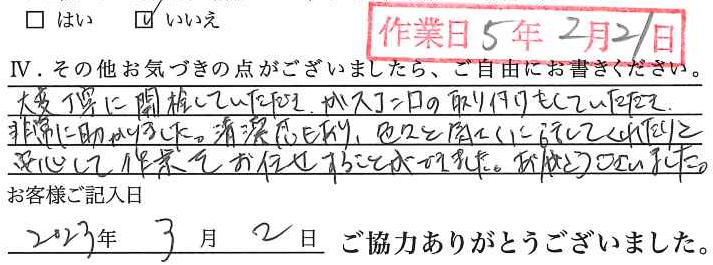 □ はい ☑ いいえ
作業日 5年 2月21日
Ⅳ．その他お気づきの点がございましたら、ご自由にお書きください。
大変丁寧に開栓していただき、ガスコンロの取り付けもしていただき、
非常に助かりました。清潔感もあり、色々と気さくに話してくれたりと
安心して作業をお任せすることができました。ありがとうございました。
お客様ご記入日
2023年 3月 2日 ご協力ありがとうございました。